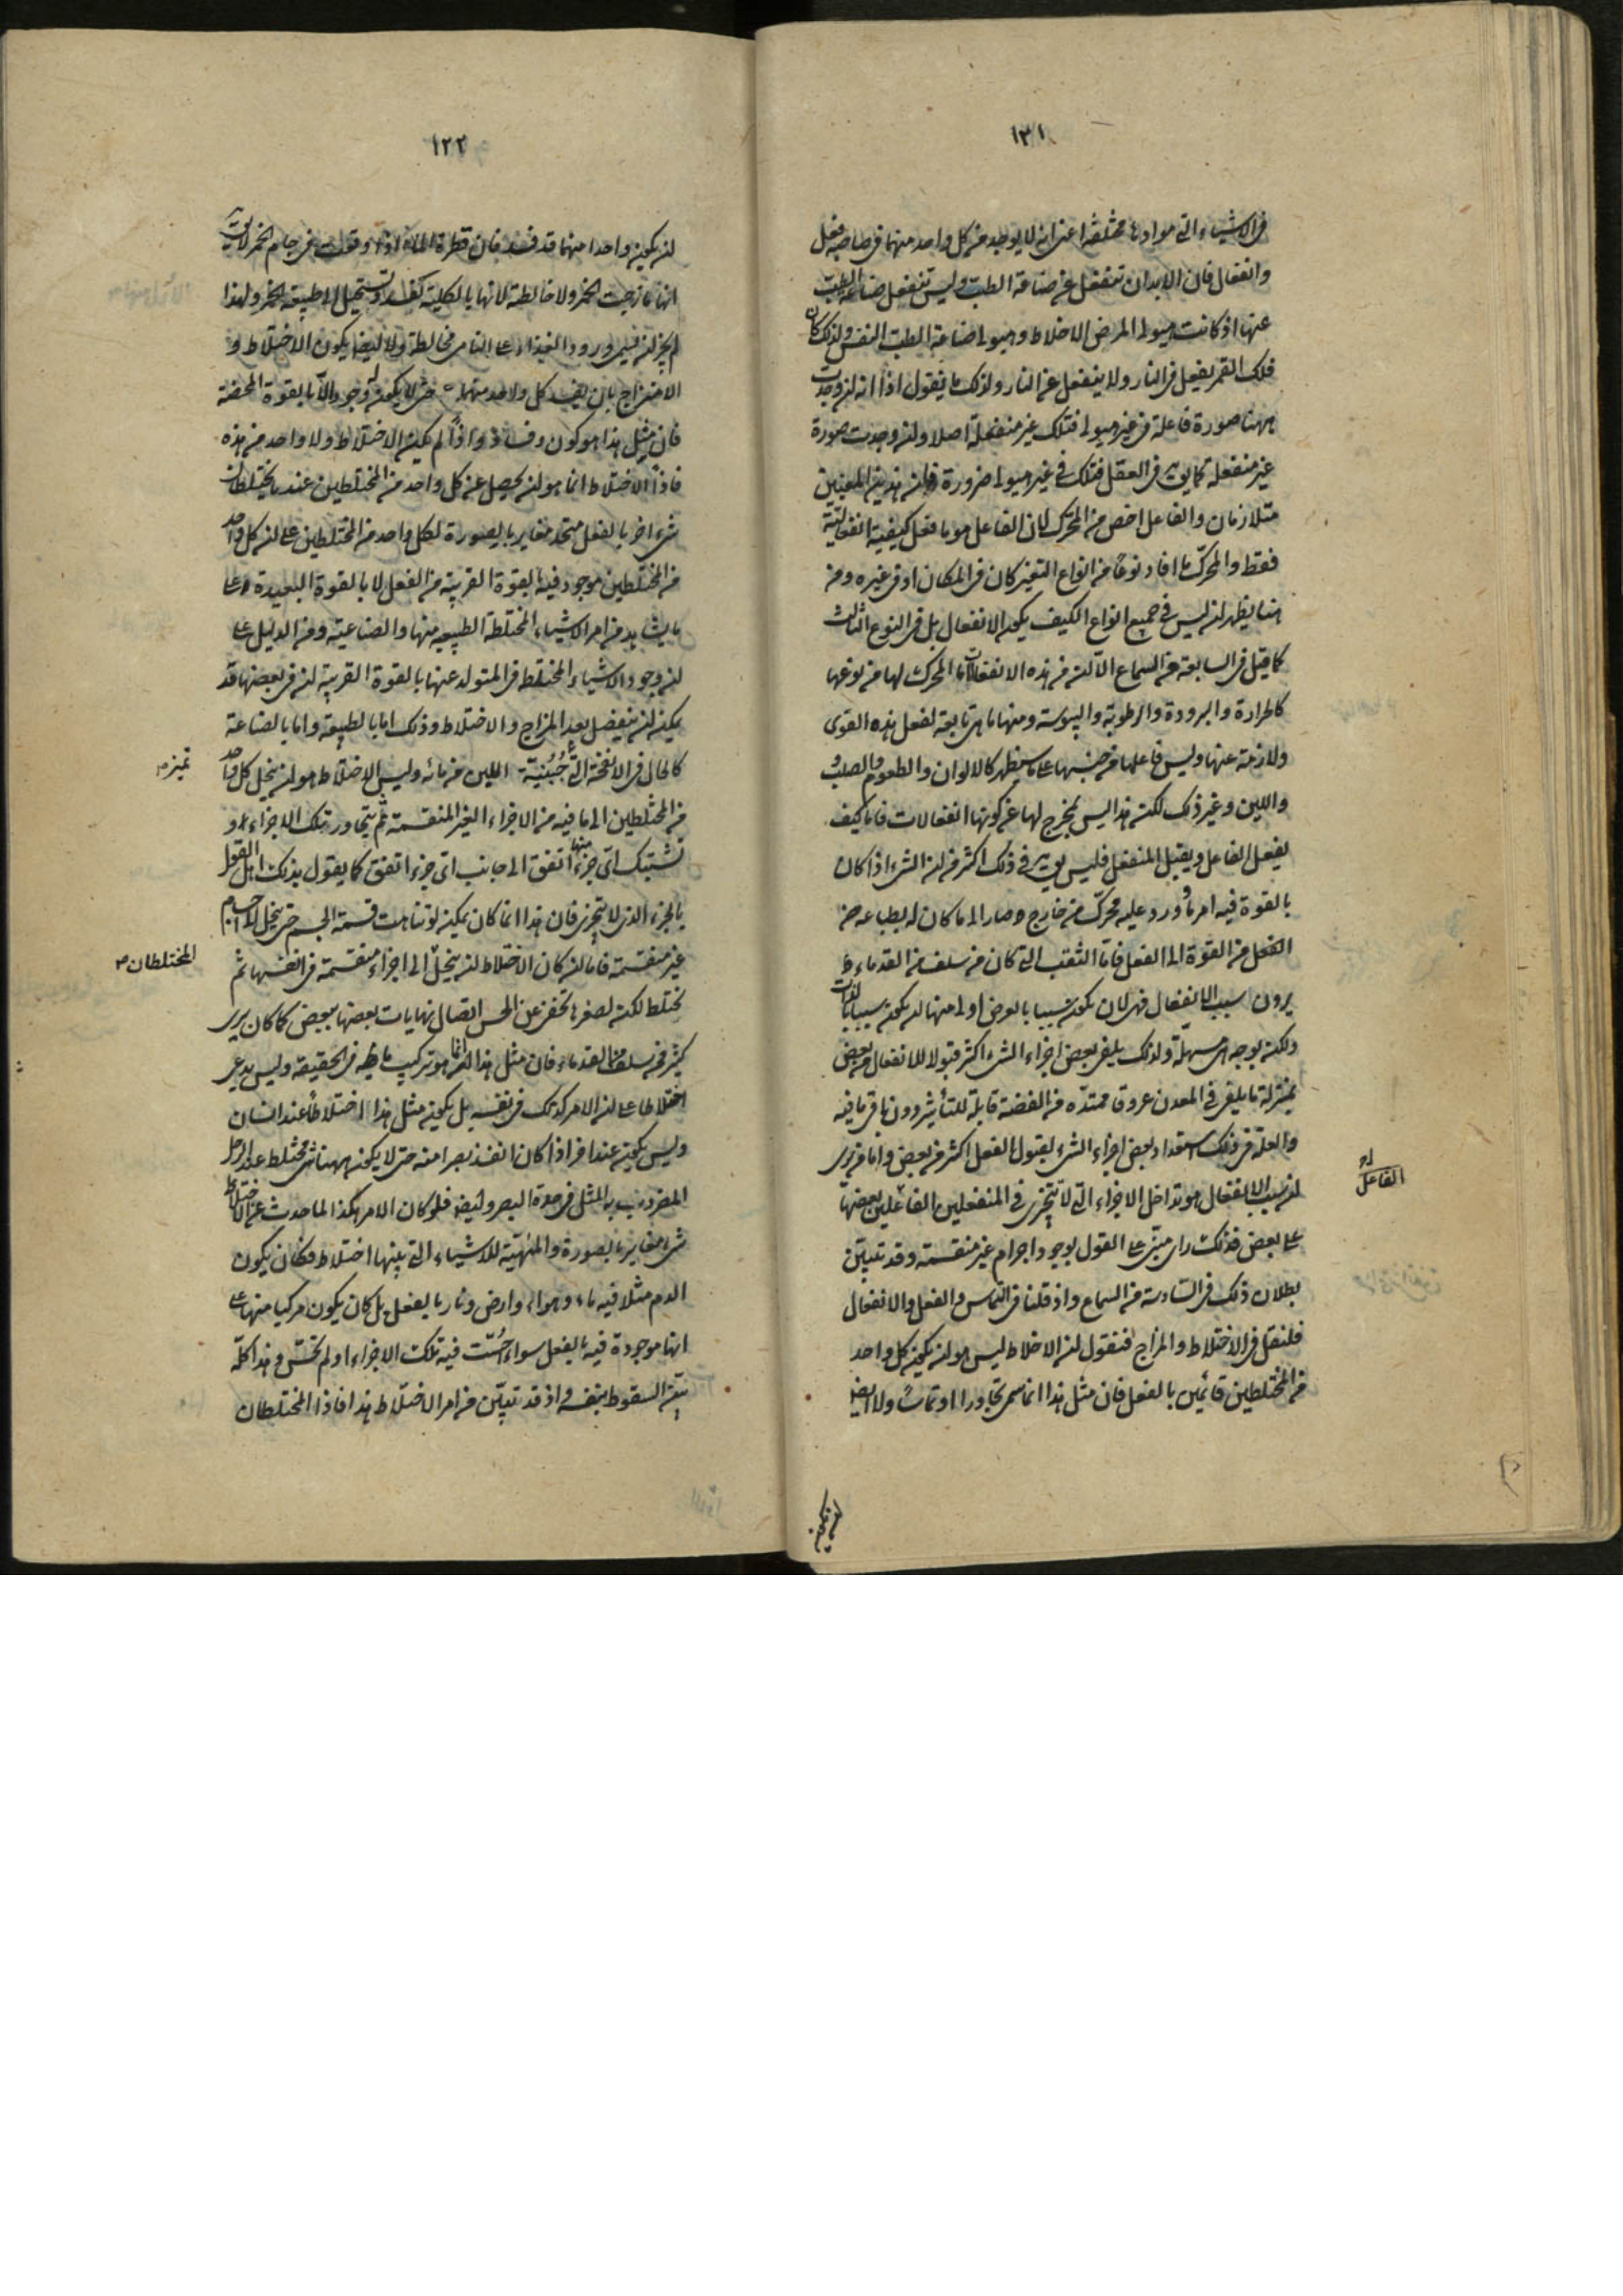 ١٢١
فى الاشياء التى موادها مختلفة اعنى انه لا يوجد فى كل واحد منهما فى صاحبه فعل
وانفعال فان الابدان تنفعل عن صناعة الطب وليس تنفعل صناعة الطب
عنها اذ كانت هيولى المرض الاخلاط وهيولى صناعة الطب النفس ولذلك كان
فلك القمر يفعل فى النار ولا ينفعل عن النار ولذلك ما يقول اذا انه ان وجدت
ههنا صورة فاعلة فى غير هيولى فتلك غير منفعلة اصلا وان وجدت صورة
غير منفعلة كما يق فى العقل فتلك فى غير هيولى ضرورة فان هذين المعنيين
متلازمان والفاعل اخص من المحرك لان الفاعل هو ما فعل كيفية انفعالية
فقط والمحرك ما افاد نوعا من انواع التغير كان فى المكان او فى غيره ومن
هنا يظهر ان ليس فى جميع انواع الكيف يكون الانفعال بل فى النوع الثالث
كما قيل فى السابعة من السماع الا ان من هذه الانفعالات ما المحرك لها من نوعها
كالحرارة والبرودة والرطوبة واليبوسة ومنها ما هى تابعة لفعل هذه القوى
ولازمة عنها وليس فاعلها من جنسها على ما سيظهر كالالوان والطعوم والصلب
واللين وغير ذلك لكن هذا ليس بمخرج لها عن كونها انفعالات فاما كيف
يفعل الفاعل ويقبل المنفعل فليس يق فى ذلك اكثر من ان الشىء اذا كان
بالقوة فيه امر ما وورد عليه محرك من خارج صار الى ما كان له بطباعه من
الفعل من القوة الى الفعل فاما الثقب التى كان من سلف من القدماء
يرون سبب الانفعال فهى لان يكون سببا بالعرض اولى منها ان يكون سببا بالذات
ولكن بوجه هى مسهلة ولذلك يلفى بعض اجزاء الشىء اكثر قبولا للانفعال من بعض
بمنزلة ما يلفى فى المعدن عروق ممتدة من الفضة قابلة للتأثير دون باقى ما فيه
والعلة فى ذلك استعداد بعض اجزاء الشىء لقبول الفعل اكثر من بعض واما من يرى
ان سبب الانفعال هو تداخل الاجزاء التى لا تتجزى فى المنفعلين الفاعلين بعضها
على بعض فذلك راى مبنى على القول بوجود اجرام غير منقسمة وقد تبين
بطلان ذلك فى السادسة من السماع واذ قلنا فى التماس والفعل والانفعال
فلنقل فى الاختلاط والمزاج فنقول ان الاختلاط ليس هو ان يكون كل واحد
من المختلطين قائمين بالفعل فان مثل هذا انما سمى تجاورا او تماسا ولا ايضا
الفاعل
ان يكون
١٢٢
ان يكون واحدا منهما قد فسد فان قطرة الماء اذا وقعت فى جام الخمر لا يق
انها مازجت الخمر ولا خالطته لانها بالكلية تفسد وتستحيل الى طبيعة الخمر ولهذا
لم يجز ان نسمى ورود الغذاء على النامى مخالطة ولا ايضا يكون الاختلاط و
الامتزاج بان يفسد كل واحد منهما حتى لا يكون له وجود الا بالقوة المحضة
فان مثل هذا هو كون وفساد واذا لم يكن الاختلاط ولا واحد من هذه
فاذا الاختلاط انما هو ان يحصل عن كل واحد من المختلطين عند ما يختلطان
شىء اخر بالفعل متحد مغاير بالصورة لكل واحد من المختلطين على ان كل واحد
من المختلطين موجود فيه بالقوة القريبة من الفعل لا بالقوة البعيدة على
ما يشاهد من امر الاشياء المختلطة الطبيعية منها والصناعية ومن الدليل على
ان وجود الاشياء المختلطة فى المتولد عنها بالقوة القريبة ان فى بعضها قد
يمكن ان ينفصل بعد المزاج والاختلاط وذلك اما بالطبيعة واما بالصناعة
كالحال فى الانفحة التى جُبُنيّة اللبن من مائه وليس الاختلاط هو ان ينحل كل واحد
تميز
من المختلطين الى ما فيه من الاجزاء الغير المنقسمة ثم يتجاور تلك الاجزاء و
تشتبك اى جزء منها اتفق الى جانب اى جزء اتفق كما يقول بذلك اهل القول
بالجزء الذى لا يتجزى فان هذا انما كان يمكن لو تناهت قسمة الجسم حتى ينحل الى اجسام
غير منقسمة فاما ان كان الاختلاط ان ينحل الى اجزاء منقسمة فى انفسها ثم
المختلطان
تختلط لكن لصغرها تخفى عن الحس اتصال نهايات بعضها ببعض كما كان يرى
كثير ممن سلف من القدماء فان مثل هذا انما هو تركيب ما ظ فى الحقيقة وليس يدعى
اختلاطا على ان الامر كذلك فى نفسه بل يكون مثل هذا اختلاطا عند انسان
وليس يكون عند اخر اذا كان انفذ بصرا منه حتى لا يكون ههنا شىء مختلط عند الرجل
المضروب به المثل فى حدة البصر وايضا فلو كان الامر هكذا لما حدث عن الاختلاط
شىء مغاير بالصورة والمهية للاشياء التى بينها اختلاط فكان يكون
الدم مثلا فيه ماء وهواء وارض ونار بالفعل بل كان يكون مركبا منها على
انها موجودة فيه بالفعل سواء احست فيه تلك الاجزاء او لم تحس وهذا كله
بين السقوط بنفسه واذ قد تبين من امر الاختلاط هذا فاذا المختلطان